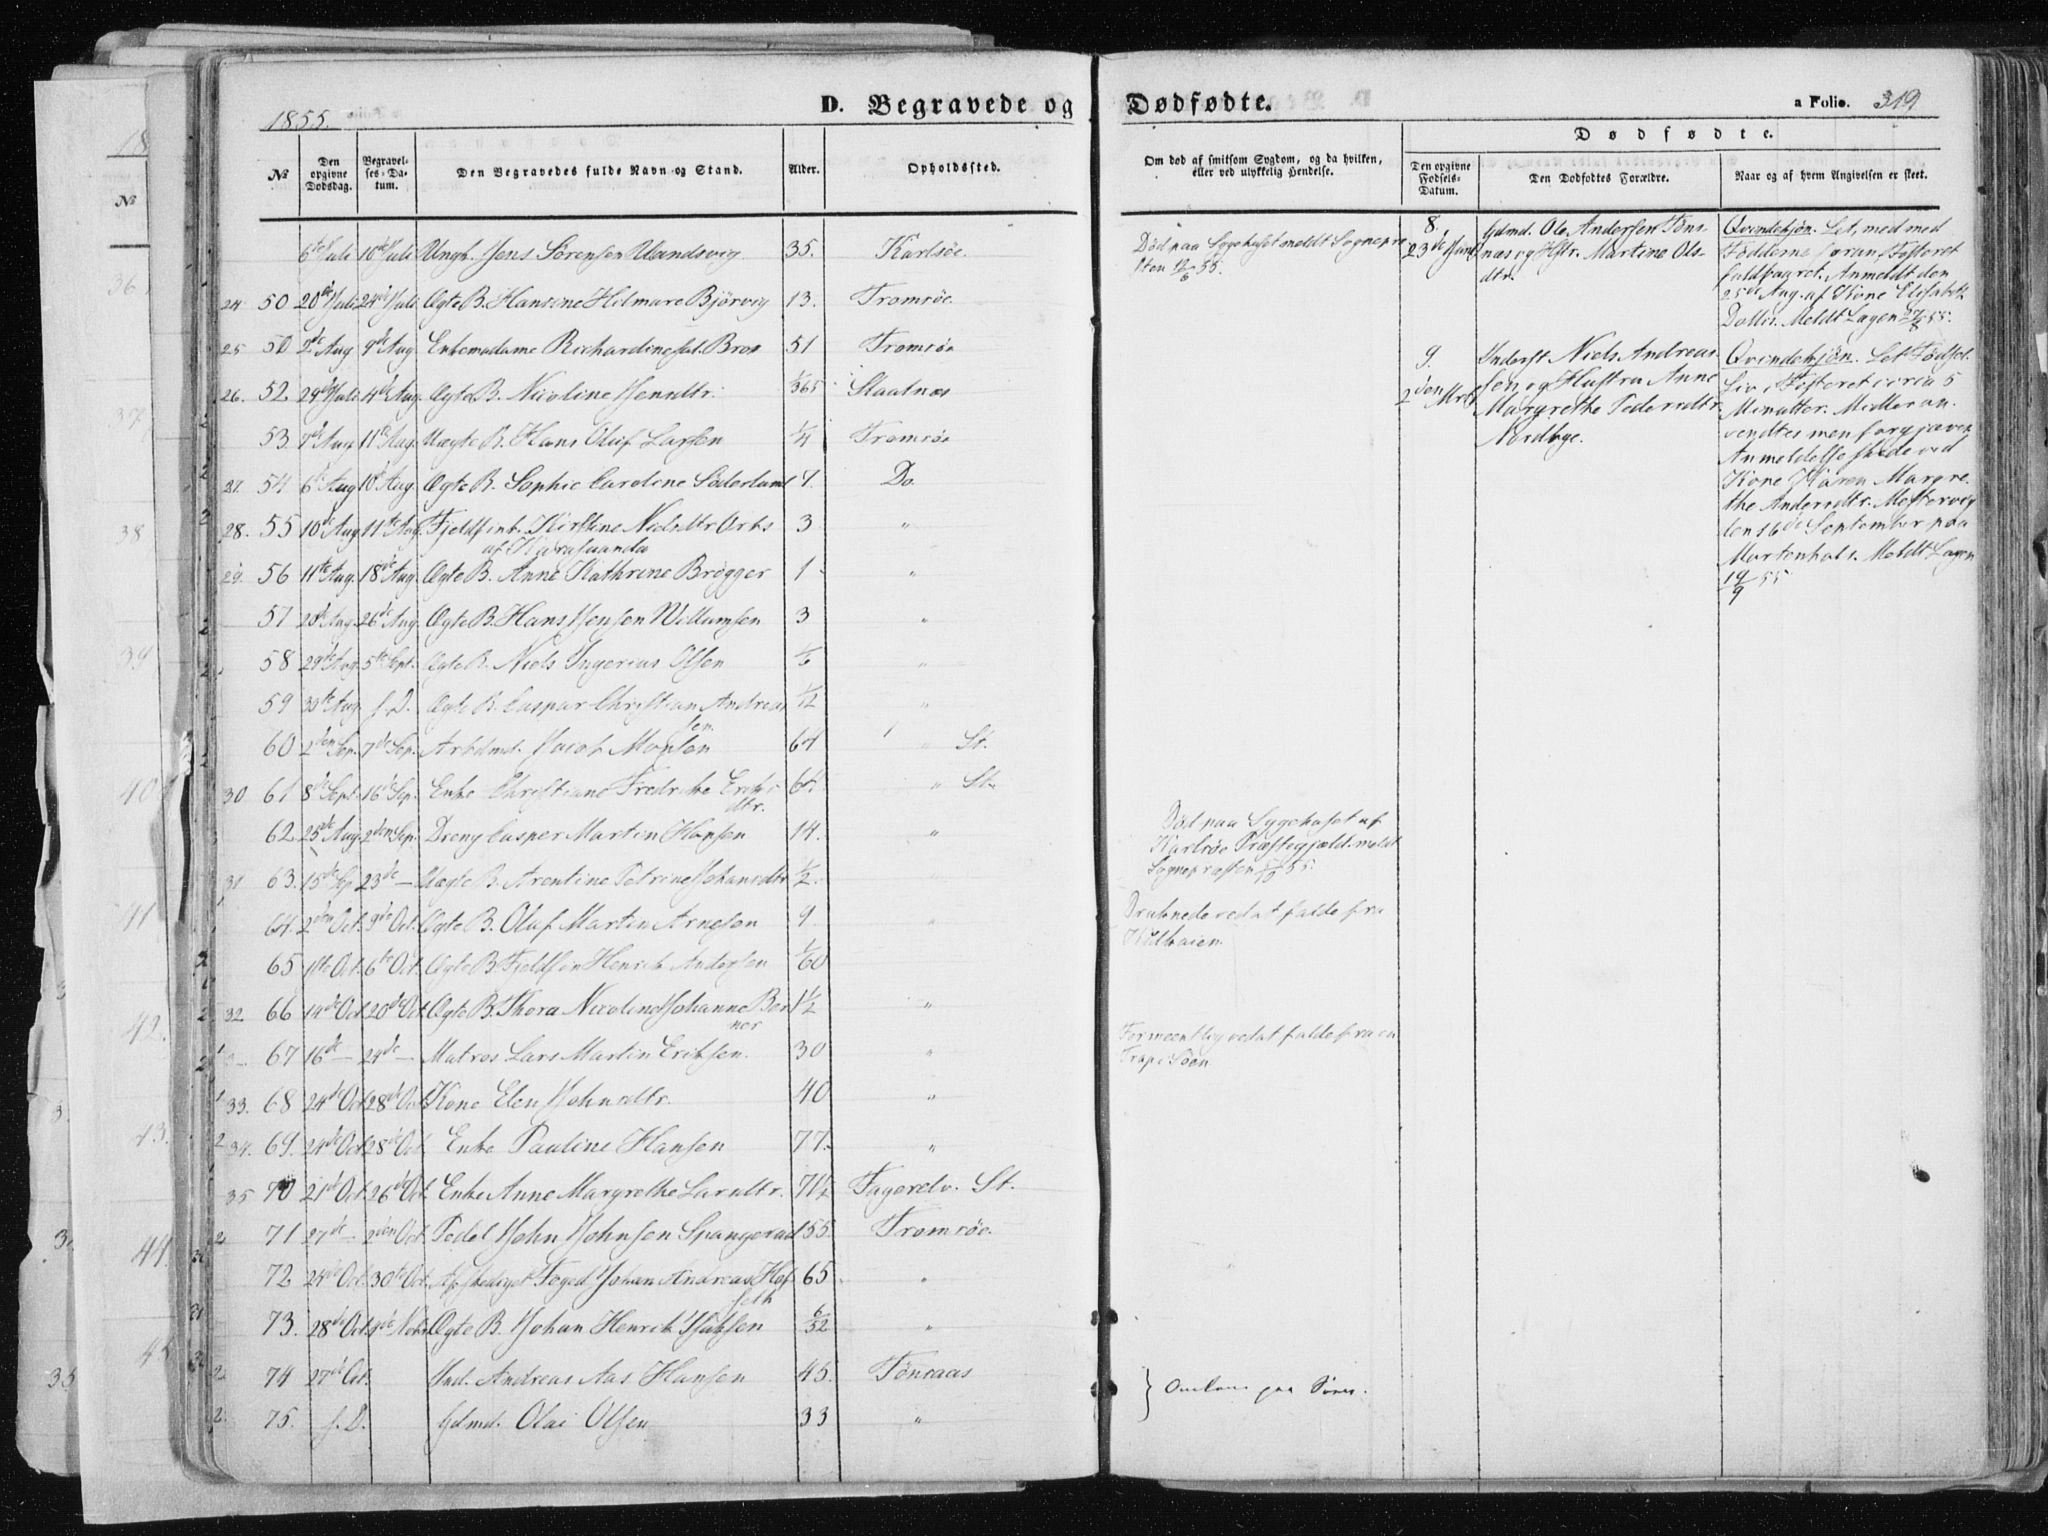 1855.
D. Begravede og Dødfødte.
a Folio. 319
№
Den opgivne Dødsdag.
Begravelses-Datum.
Den Begravedes fulde Navn og Stand.
Alder.
Opholdssted.
Om død af smitsom Sygdom, og da hvilken, eller ved ulykkelig Hendelse.
Dødfødte.
Den opgivne Fødsels-Datum.
Den Dødfødtes Forældre.
Naar og af hvem Angivelsen er skeet.
6te Juli 10de Juli Ungk. Jens Sørensen 35. Karlsöe.
24 50 20de Juli 24de Juli Ægte B. Hansine Helmare Björvig 13. Tromsöe.
25 51 2de Aug 9de Aug Enkemadame Richardine 51 Tromsöe
26. 52. 29de Juli 4de Aug. Ægte B. Nicoline Jensdtr. 1/365 Staalnæs
53. 7de Aug 11te Aug. Uægte B. Hans Oluf Larsen 1/4 Tromsöe
27. 54 6te Aug 10de Aug. Ægte B. Sophie Caroline Söderlund 7. Do.
28. 55 10de Aug 11te Aug. Fjeldfinb. Kirstine Nielsdtr
af
3 "
29. 56 11te Aug. 18de Aug. Ægte B. Anne Kathrine Brøgger 1 "
57 20de Aug. 26de Aug. Ægte B. Hans Jensen Willumsen 3 "
58 29de Aug. 5te Sept. Ægte B. Niels Ingerius Olsen "
59 30te Aug. s. D. Ægte B. Caspar Christian Andreas
sen. 1/2 "
60 2den Sep. 7de Sep. Arbdmd. Jacob Monsen 64 " St.
30 61 8de Sept. 16de Sep. Enke Christiane Fredrikke Eriks
dtr. 64. " St.
62. 25de Aug. 2den Sep. Dreng Casper Martin Hansen 14. "
31 63. 15de Sep 23de — Uægte B. Arentine Petrine Johansdtr 1/2.
64. 2den Oct. 9de Oct. Ægte B. Oluf Martin Arnesen 9. "
65 1te Oct. 6te Oct. Ægte B. Fjeldfin Henrik Andersen 1/60
32 66 14de Oct. 20de Oct. Ægte B. Thora Nicoline Johanne Ber
ner 1 1/2 "
67 16de — 24de — Matros Lars Martin Eriksen. 30 "
33. 68 24de Oct. 28de Oct. Kone Elen Johnsdtr. 40 "
34. 69. 24de Oct. 28de Oct. Enke Pauline Hansen 77. "
35 70 21de Oct. 26de Oct. Enke Anne Margrethe Larsdtr. 71 1/2 Fagerelv. St.
71 27de — 2den Oct. Pedel John Johnsen 55. Tromsöe.
72 24de Oct. 30te Oct. Afskediget Foged Johan Andreas Hef
feth 65 "
73. 28de Oct. Ægte B. Johan Henrik 6/52 "
74 27de Oct. Ind. Andreas Aas Hansen 45. Tönsaas
75. s. D. Gdmd. Olai Olsen 33 "
Död paa Sygehuset meldt Sognepræ
sten 12/8 55.
Död paa Sygehuset af
Karlsöe Præstegjæld. meldt
Sognepræsten 5/10 55.
Druknede ved at falde fra
Formeentlig ved at falde fra en
Trap i Söen.
} Omkom paa Söen.
8.
23de Juni
Gdmd. Ole Andersen Töns-
næs og Hstr. Martine Ols-
dtr.
Qvindekjön. Let, med med
Födderne foran, Fosteret
fuldbaaret. Anmeldt den
25de Aug. af Kone Elisabeth
Meldt Lagen 27/8 55.
9.
2den
Inderst Niels Andreas-
sen og Hustru Anne
Margrethe Pedersdtr.
Nordbye.
Qvindekjön. Let Födsel.
Liv i Fosteret circa 5
Minutter. Midler an
vendtes men forgjæves
Anmeldelse skede ved
Kone Karen Margre
the Andersdtr. Mestervig
den 16de September paa
Martenhals. Meldt Lagen
19/9 55